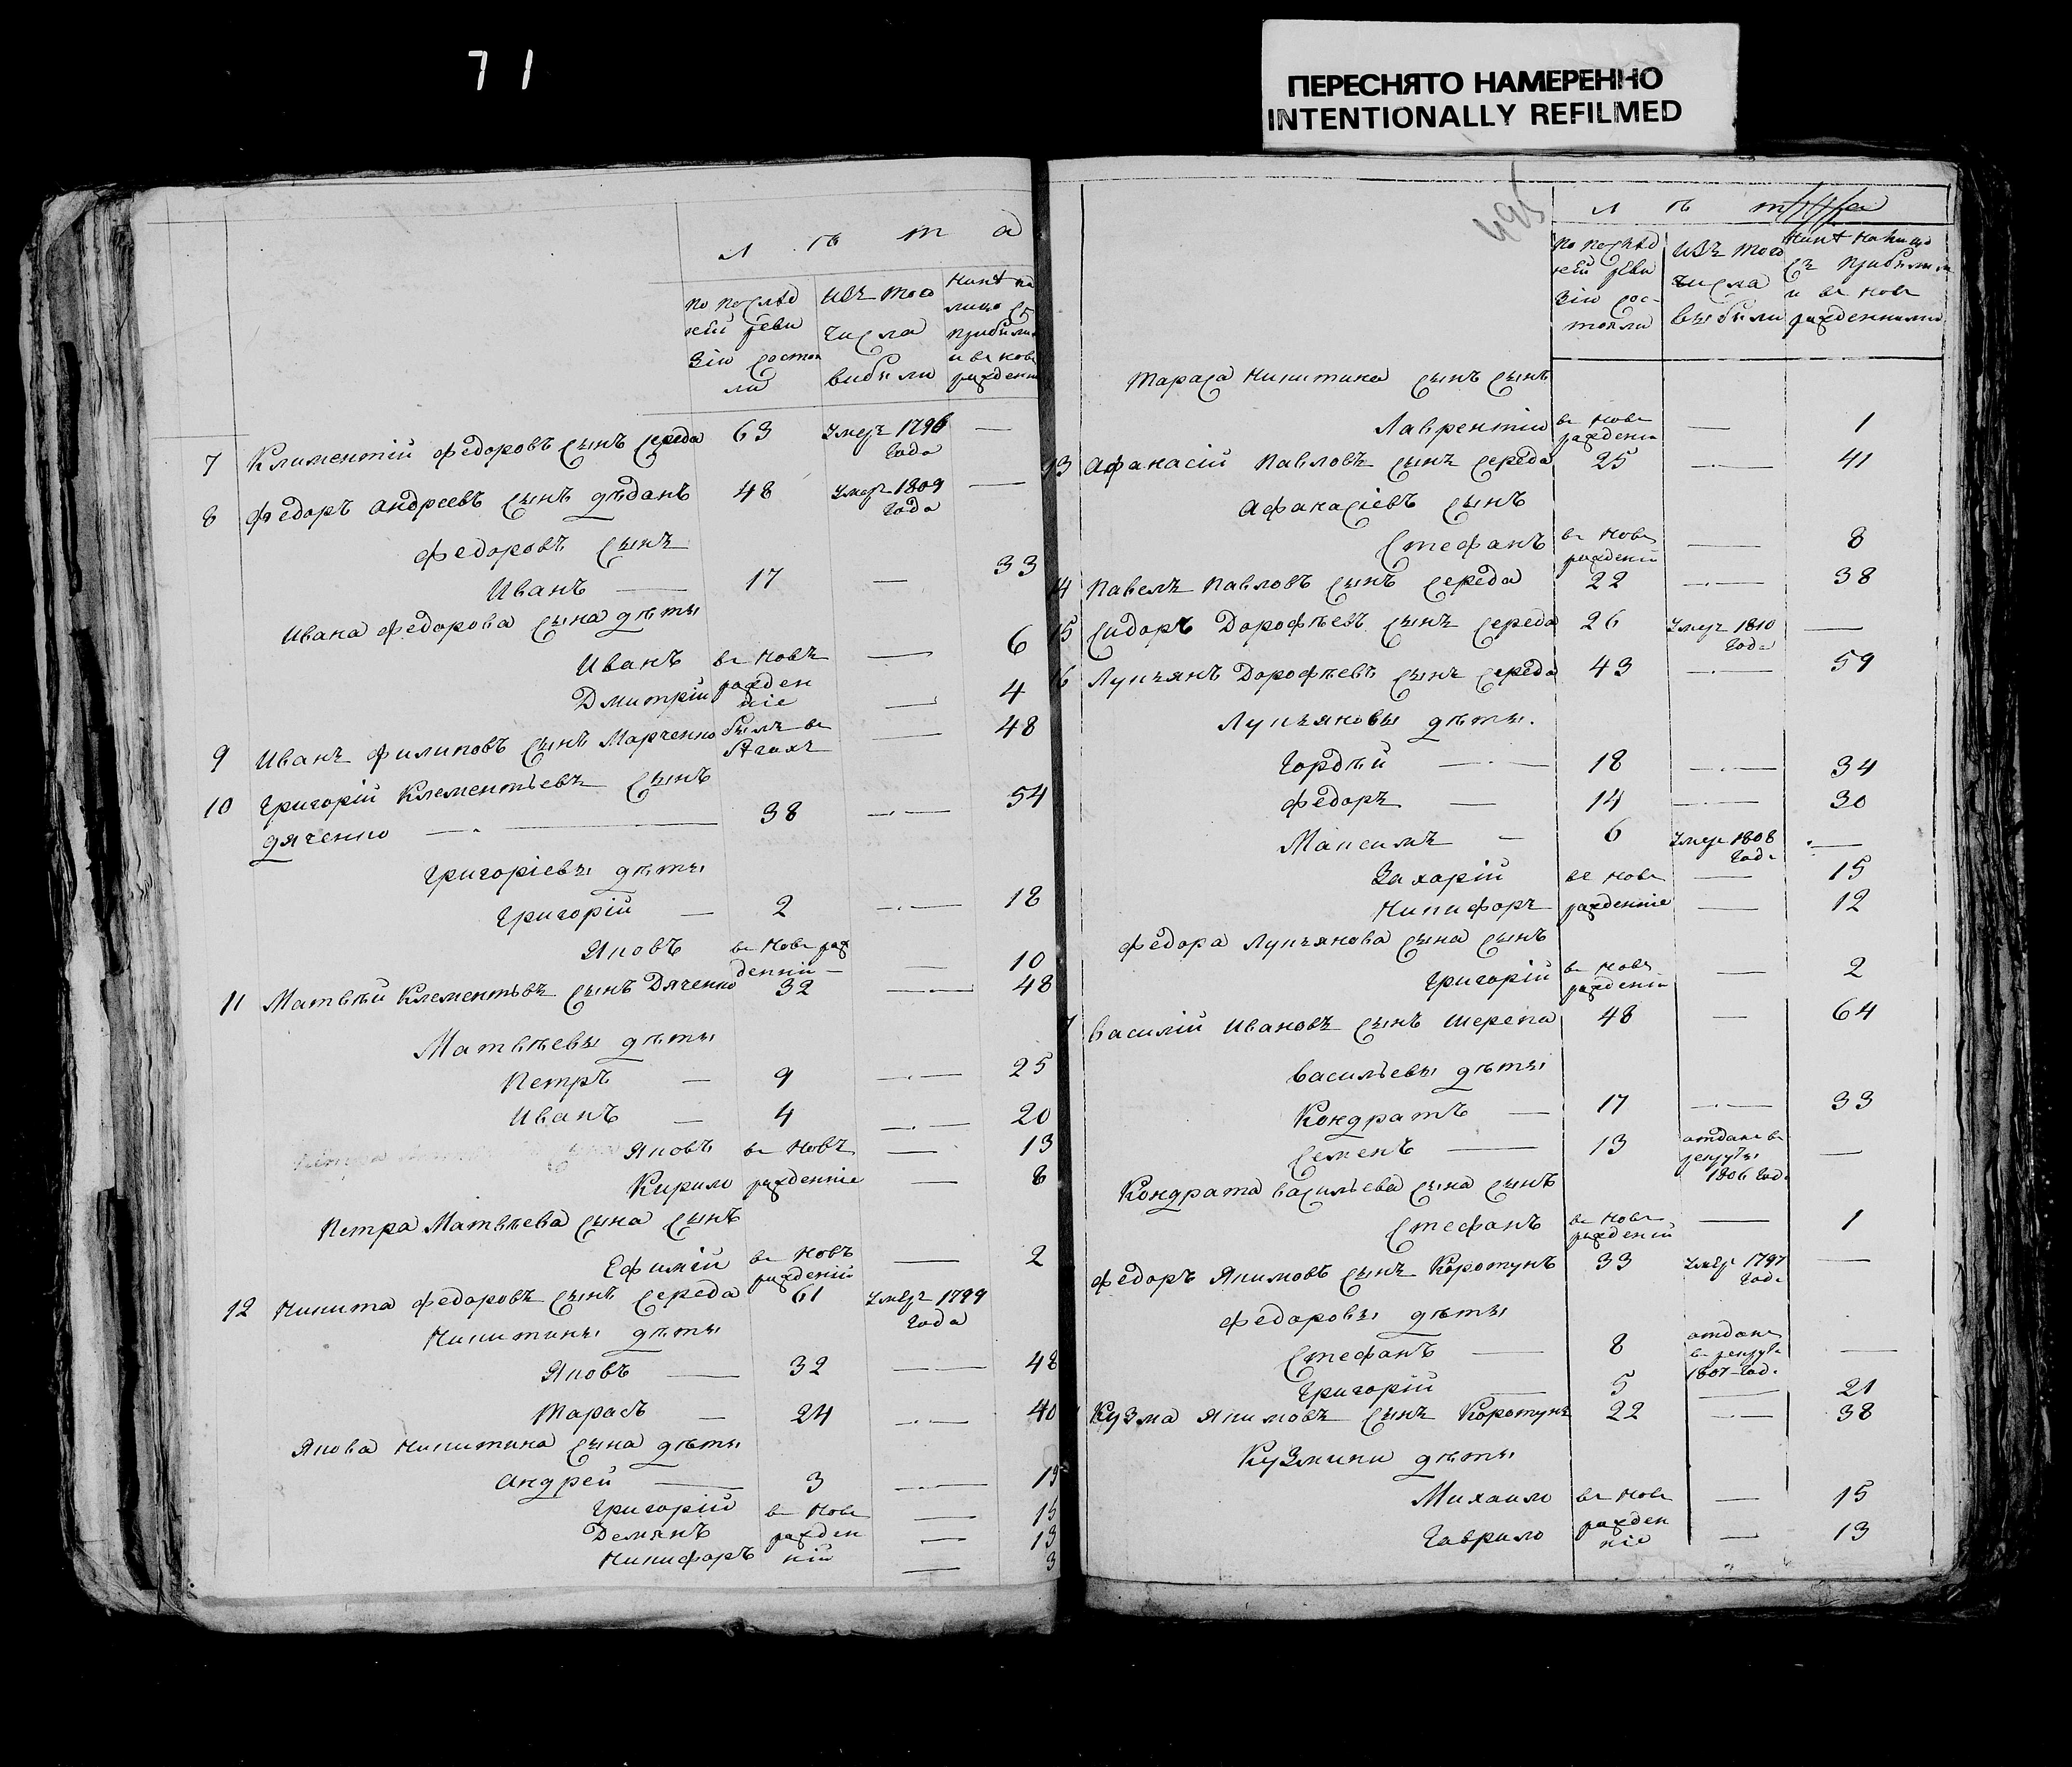 71
ПЕРЕСНЯТО НАМЕРЕННО
INTENTIONALLY REFILMED
Л ѣ т а
по послѣд изъ того нинѣ на
ней реви числа лицо съ
зіи состоя вибыли прибили
ли и въ новь
рожден
7 Климентій Федоровъ сынъ Середа 63 умеръ 1796 —
года
8 Федоръ Андреевъ сынъ Дѣданъ 48 умеръ 1809 —
года
Федоровъ сынъ
Иванъ — 17 — 33
Ивана Федорова сына дѣты
Иванъ въ новъ — 6
Дмитрій рожден — 4
ніе
9 Иванъ Филиповъ сынъ Марченко былъ въ — 48
бѣгахъ
10 Григорій Клементьевъ сынъ
Дяченко — 38 — 54
Григоріевы дѣты
Григорій — 2 — 18
Яковъ въ новь рож — 10
денній
11 Матвѣй Клементьвъ сынъ Дяченко 32 — 48
Матвѣевы дѣты
Петръ — 9 — 25
Иванъ — 4 — 20
Яковъ въ новъ — 13
Кирило рожденніе — 8
Петра Матвѣева сына сынъ
Ефимій въ новъ — 2
рожденій
12 Никита Федоровъ сынъ Середа 61 умеръ 1799
года
Никитины дѣты
Яковъ — 32 — 48
Тарасъ — 24 — 40
Якова Никитина сына дѣты
Андрей — 3 — 19
Григорій въ новь — 15
Демянъ рожден — 13
Никифоръ ній — 3
495
Л ѣ та
по послѣд изъ того нинѣ на лицо
ней реви числа съ прибилим
зіи сос- выбыли и въ новь
тояли рожденними
Тараса Никитина сынъ сынъ
Лаврентій въ новь — 1
рождени
13 Афанасій Павловъ сынъ Середа 25 — 41
Афанасіевъ сынъ
Стефанъ въ новь — 8
рожденій
14 Павелъ Павловъ сынъ Середа 22 — 38
15 Сидоръ Дорофѣевъ сынъ Середа 26 умеръ 1810 —
года
16 Лукъянъ Дорофѣевъ сынъ Середа 43 — 59
Лукъяновы дѣты.
Гордѣй — 18 — 34
Федоръ — 14 — 30
Максимъ — 6 умер 1808 —
года
Захорій въ новь — 15
Никифоръ рожденніе — 12
Федора Лукъянова сына сынъ
Григорій въ новъ — 2
рождени
7 Василій Ивановъ сынъ Шерепа 48 — 64
Васильевы дѣты
Кондратъ — 17 — 33
Семенъ — 13 отданъ въ —
рекруты
1806 года
Кондрата Васильева сына сынъ
Стефанъ въ новь — 1
рожденій
Федоръ Якимовъ сынъ Коротунъ 33 умер 1797 —
года
Федоровы дѣты
Стефанъ — 8 отданъ —
в рекрути
1807 года
Григорій — 5 — 21
Кузма Якимовъ сынъ Коротунъ 22 — 38
Кузмини дѣты
Михаило въ новь — 15
Гаврило рожден — 13
ніе